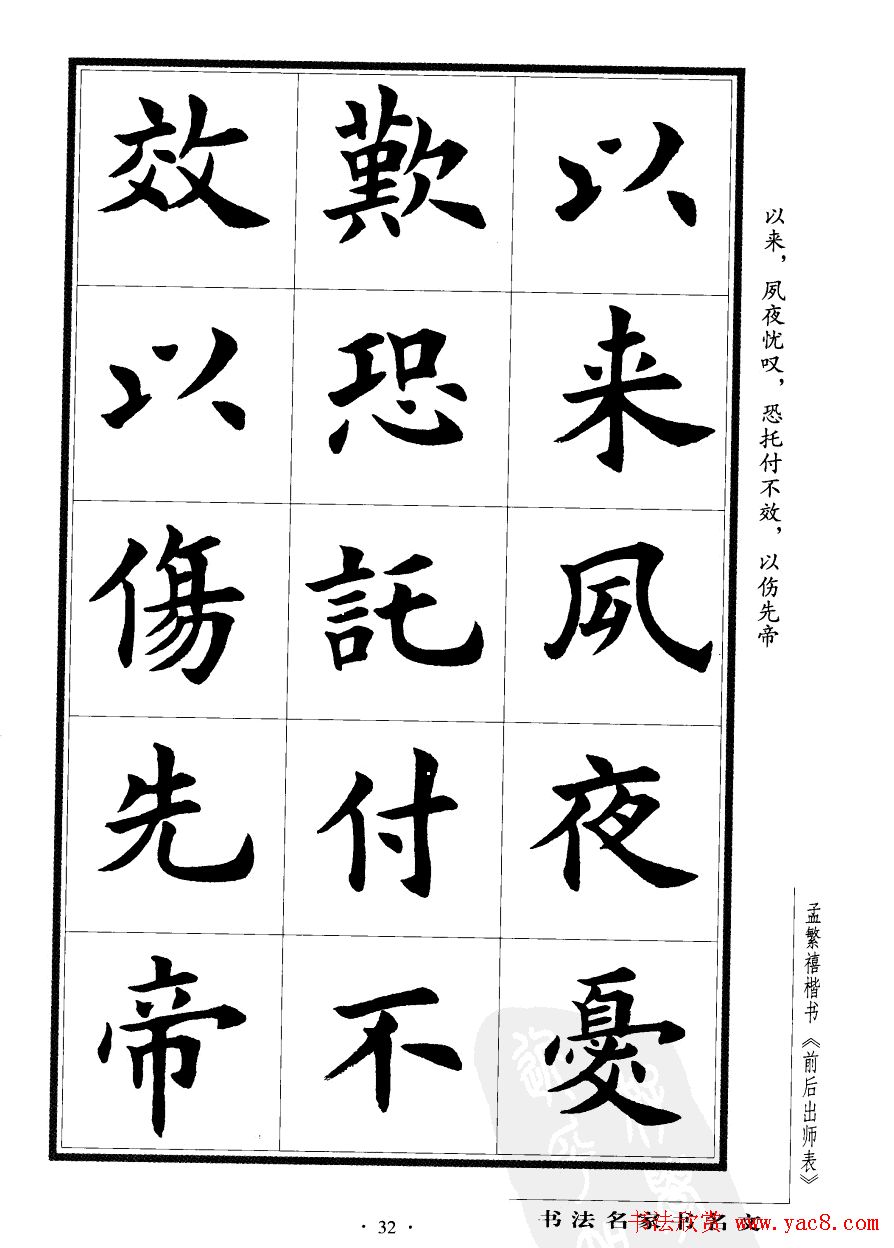 以来夙夜憂
歎恐託付不
效以傷先帝
以来，夙夜忧叹，恐托付不效，以伤先帝
孟繁禧楷书《前后出师表》
·32·
书法名家书名文
书法欣赏 www.yac8.com